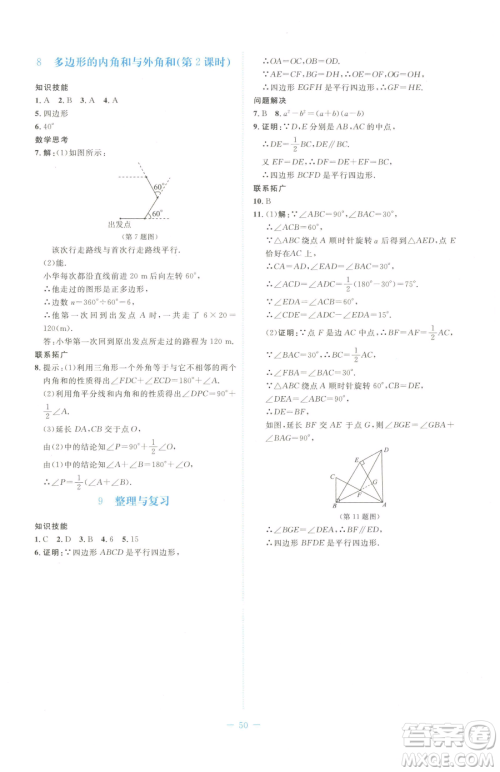 8 多边形的内角和与外角和(第2课时)
知识技能
1. A 2. B 3. A 4. D
5. 四边形
6. 40°
数学思考
7. 解:(1)如图所示:
60°
60°
出发点
(第7题图)
该次行走路线与首次行走路线平行.
(2)能.
小华每次都沿直线前进且向左转 60°,
∴他走过的图形是正多边形.
∴边数 n=360°÷60°=6.
∴他第一次回到出发点时走了 6×20=
120(m).
答:小华第一次回到原出发点时走的路程为
120 m.
联系拓广
8. 提示:(1)利用三角形一个外角等于与它不相邻的两个
内角和的性质得∠FDC+∠ECD=180°+∠A.
(2)利用角平分线和三角形内角和得∠P=90°+
1/2∠A.
(3)延长 DA,CB 交于点 O,
由(2)中的结论知∠P=90°+1/2∠O.
由(1)中的结论知∠A+∠B=180°+∠O,
∴∠P=1/2(∠A+∠B).
9 整理与复习
知识技能
1. C 2. D 3. B 4. 6 5. 15
6. 证明:∵四边形 ABCD 是平行四边形,
∴OA=OC,OB=OD.
∵AE=CF,∴OE=OF.
∵AG=BG,DH=CH,
∴四边形 GEHF 是平行四边形.
问题解决
7. B 8. a²-b²=(a+b)(a-b)
9. 证明:∵D,E 分别是 AB,AC 的中点,
∴DE=1/2BC,DE∥BC.
又∵EF=DE,
∴DF=BC.
∴四边形 BCFD 是平行四边形.
联系拓广
10. B
11. (1)解:∵∠ABC=90°,∠BAC=30°,
∴∠ACB=60°.
∵△ABC 绕点 A 顺时针旋转 α 后得到△AED,点
E 恰好在 AC 上,
∴CA=AD,∠EAD=∠BAC=30°.
∴∠ACD=∠ADC=1/2(180°-30°)=75°.
∵∠EDA=∠ACB=60°,
∴∠CDE=∠ADC-∠EDA=15°.
(2)证明:∵点 F 是边 AC 的中点,∠ABC=90°,
∴BF=AF=1/2AC.
∵∠BAC=30°,
∴BC=1/2AC.
∴∠FBA=∠BAC=30°.
∵△ABC 绕点 A 顺时针旋转 60°得到△AED,
∴∠BAE=∠CAD=60°,CB=DE,∠DEA=
∠ABC=90°.
∴DE=BF.
如图,延长 BF 交 AE 于点 G,则∠BGE=∠GBA+
∠BAG=90°.
D
E
C
G
F
B
A
(第11题图)
∴∠BGE=∠DEA.∴BF∥ED.
∴四边形 BFDE 是平行四边形.
50